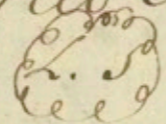 L. S